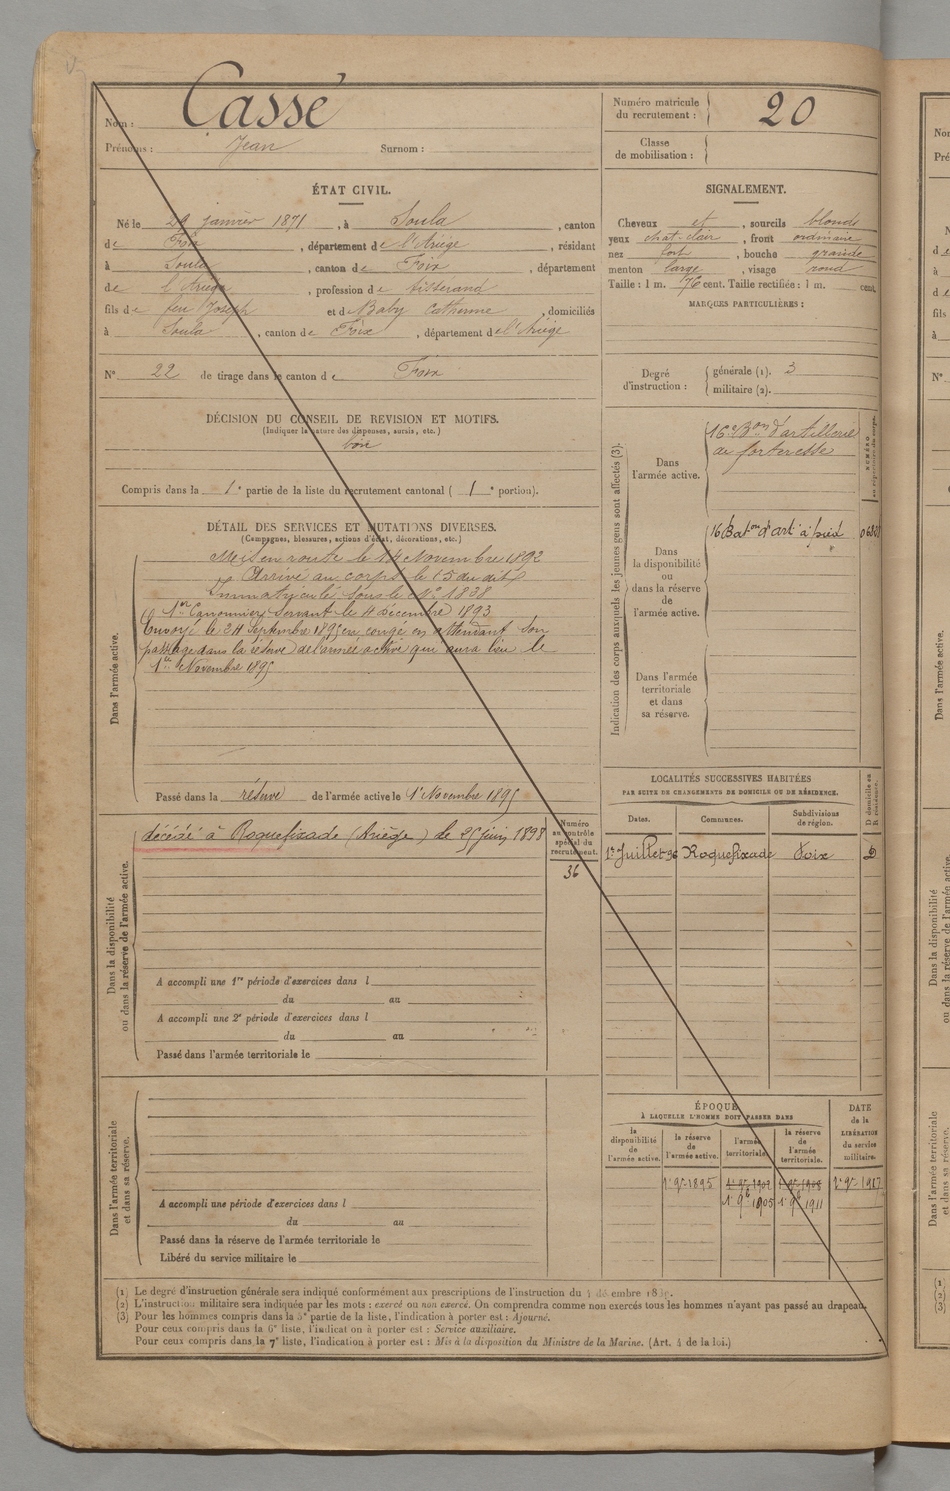 Nom : Cassé
Prénoms : Jean Surnom :
ÉTAT CIVIL.
Né le 29 janvier 1871, à Soula, canton
de Foix, département de l'Ariège, résidant
à Soula, canton de Foix, département
de l'Ariège, profession de tisserand
fils de feu Joseph et de Baby Catherine, domiciliés
à Soula, canton de Foix, département de l'Ariège
N° 22 de tirage dans le canton de Foix
DÉCISION DU CONSEIL DE REVISION ET MOTIFS.
(Indiquer la nature des dispenses, sursis, etc.)
bon
Compris dans la 1e partie de la liste du recrutement cantonal ( 1e portion).
DÉTAIL DES SERVICES ET MUTATIONS DIVERSES.
(Campagnes, blessures, actions d'éclat, décorations, etc.)
Dans l'armée active.
Mis en route le 14 Novembre 1892
Arrivé au corps le 15 du dit
Immatriculé sous le N° 1838
1er Canonnier Servant le 4 décembre 1893
Envoyé le 24 Septembre 1895 en congé en attendant son
passage dans la réserve de l'armée active qui aura lieu le
1er Novembre 1895
Passé dans la réserve de l'armée active le 1er Novembre 1895
Dans la disponibilité
ou dans la réserve de l'armée active.
décédé à Roquefixade (Ariège) le 25 juin 1898
Numéro
au contrôle
spécial du
recrutement.
36
A accompli une 1re période d'exercices dans l
du au
A accompli une 2e période d'exercices dans l
du au
Passé dans l'armée territoriale le
Dans l'armée territoriale
et dans sa réserve.
A accompli une période d'exercices dans l
du au
Passé dans la réserve de l'armée territoriale le
Libéré du service militaire le
Numéro matricule
du recrutement : 20
Classe
de mobilisation :
SIGNALEMENT.
Cheveux et, sourcils blonds
yeux chat-clair, front ordinaire
nez fort, bouche grande
menton large, visage rond
Taille : 1 m. 76 cent. Taille rectifiée : 1 m. cent.
MARQUES PARTICULIÈRES :
Degré
d'instruction :
générale (1). 3
militaire (2).
Indication des corps auxquels les jeunes gens sont affectés (3).
Dans
l'armée active.
16e Bon d'artillerie
de forteresse
Dans
la disponibilité
ou
dans la réserve
de
l'armée active.
16 Baton d'art à pied
Dans l'armée
territoriale
et dans
sa réserve.
LOCALITÉS SUCCESSIVES HABITÉES
PAR SUITE DE CHANGEMENTS DE DOMICILE OU DE RÉSIDENCE.
Dates. Communes. Subdivisions
de région.
1er Juillet 96 Roquefixade Foix D
ÉPOQUE
À LAQUELLE L'HOMME DOIT PASSER DANS
DATE
de la
LIBÉRATION
du service
militaire.
la
disponibilité
de
l'armée active.
la réserve
de
l'armée active.
l'armée
territoriale.
la réserve
de
l'armée
territoriale.
1er 9bre 1895
1er 9b 1905 1er 9b 1911
1er 9bre 1917
(1) Le degré d'instruction générale sera indiqué conformément aux prescriptions de l'instruction du 4 décembre
(2) L'instruction militaire sera indiquée par les mots : exercé ou non exercé. On comprendra comme non exercés tous les hommes n'ayant pas passé au drapeau.
(3) Pour les hommes compris dans la 5e partie de la liste, l'indication à porter est : Ajourné.
Pour ceux compris dans la 6e liste, l'indication à porter est : Service auxiliaire.
Pour ceux compris dans la 7e liste, l'indication à porter est : Mis à la disposition du Ministre de la Marine. (Art. 4 de la loi.)